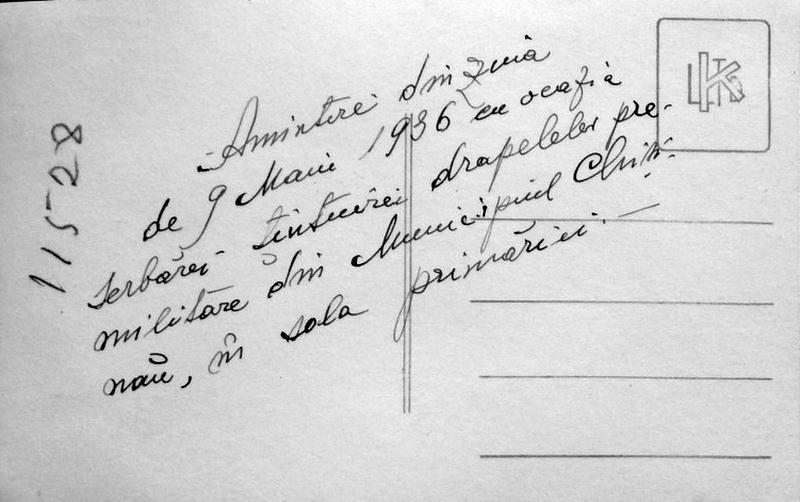 Amintire din ziua
de 9 Maiu 1936 cu ocazia
serbărei țintuirei drapelelor pre-
militare din Municipiul Chiși-
nău, în sala primăriei. —
11528